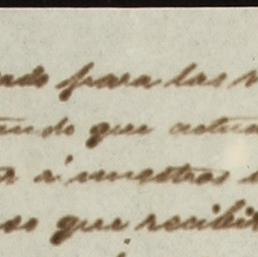 ado para las
ando que actua
a á nuestros
so que recibi